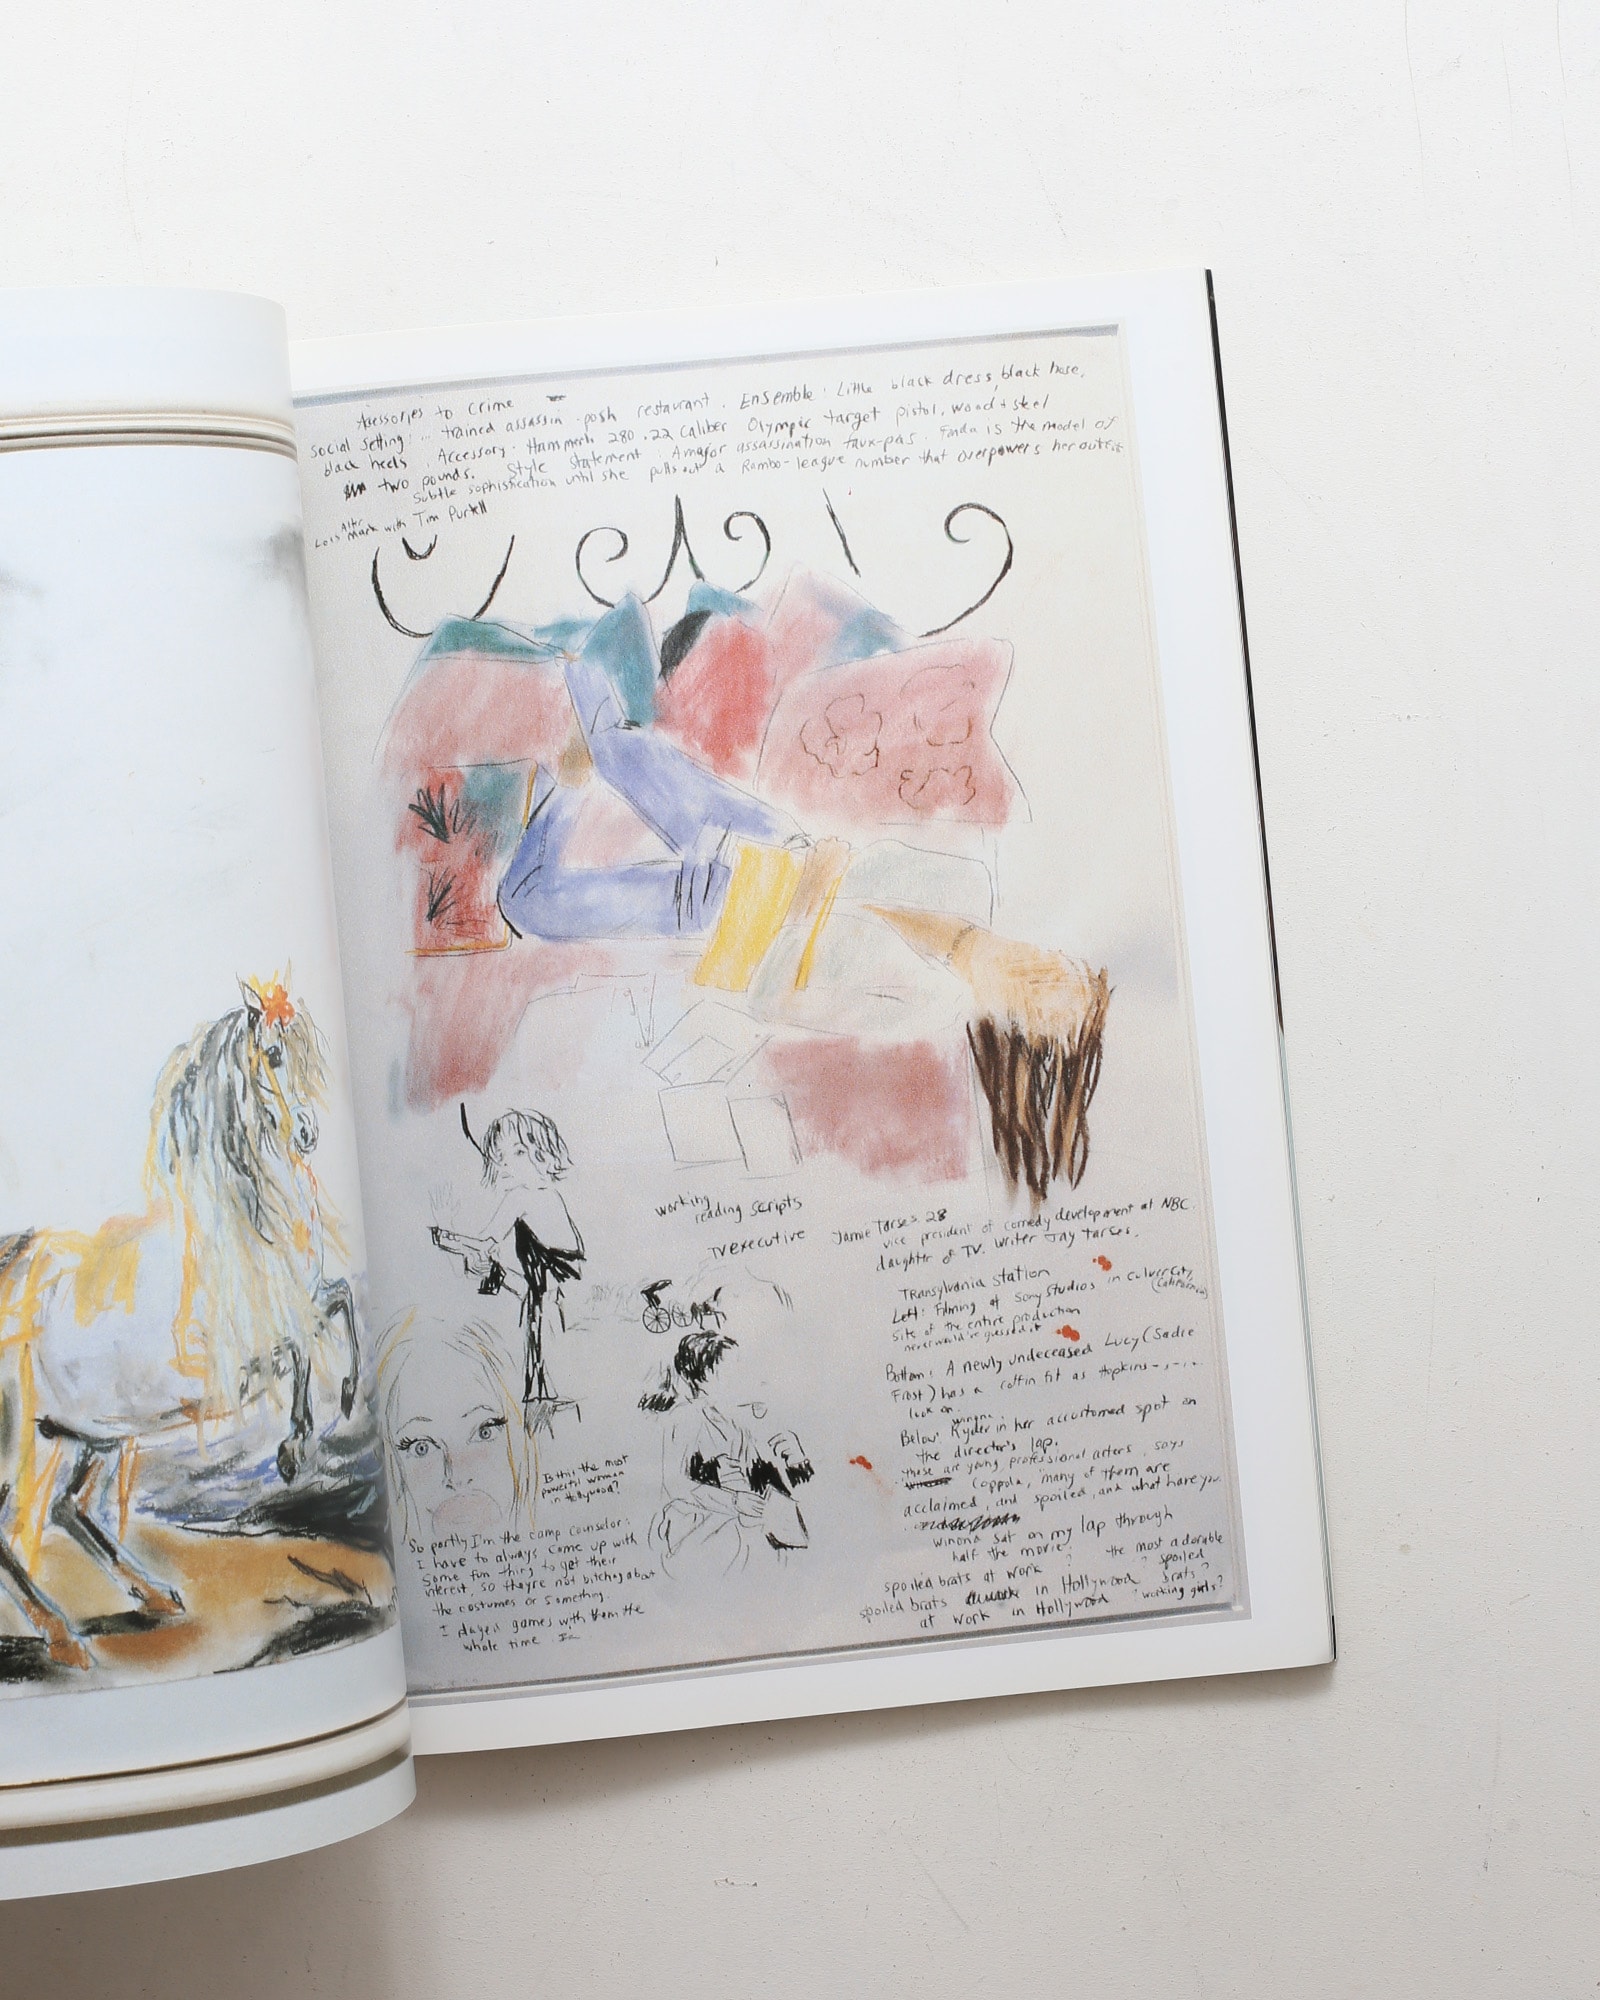 Acessories to Crime
Social Setting: trained assassin posh restaurant. Ensemble: Little black dress, black hose,
black heels. Accessory: Hammerli 280 .22 Caliber Olympic target pistol, wood + steel
two pounds. Style Statement: A major assassination faux-pas. Fonda is the model of
Subtle sophistication until she pulls out a Rambo-league number that overpowers her outfit
Lois Mark with Tim Purtell
working
reading scripts
TV executive
Jamie Tarses, 28
vice president of comedy development at NBC.
daughter of TV. writer Jay Tarses.
Transylvania Station
Left: Filming at Sony Studios in Culver City,
(California)
Site of the entire production
never would've guessed it
Bottom: A newly undeceased Lucy (Sadie
Frost) has a coffin fit as Hopkins
look on.
winona
Below: Ryder in her accustomed spot on
the director's lap.
these are young, professional actors, says
Coppola, many of them are
acclaimed, and spoiled, and what have you.
winona sat on my lap through
half the movie.
the most adorable
spoiled brats at work ? ? spoiled
spoiled brats in Hollywood brats?
at work in Hollywood ? working girls?
Is this the most
powerful woman
in Hollywood?
So partly I'm the camp counselor:
I have to always come up with
some fun thing to get their
interest, so they're not bitching about
the costumes or something
I played games with them the
whole time